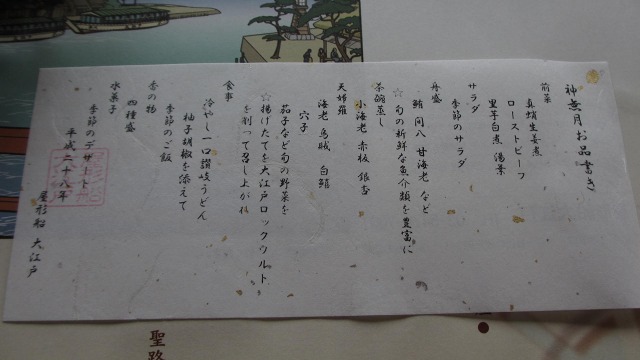 神無月お品書き
前菜
真蛸生姜煮
ローストビーフ
里芋白煮 湯葉
サラダ
季節のサラダ
舟盛
鮪 間八 甘海老 など
☆ 旬の新鮮な魚介類を豊富に
茶碗蒸し
小海老 赤板 銀杏
天婦羅
海老 烏賊 白鱚
穴子
茄子など旬の野菜を
☆揚げたてを大江戸ロックソルト
を削って召し上がれ
食事
冷やし一口讃岐うどん
柚子胡椒を添えて
季節のご飯
香の物
四種盛
水菓子
季節のデザート
平成二十八年
屋形船 大江戸
聖路